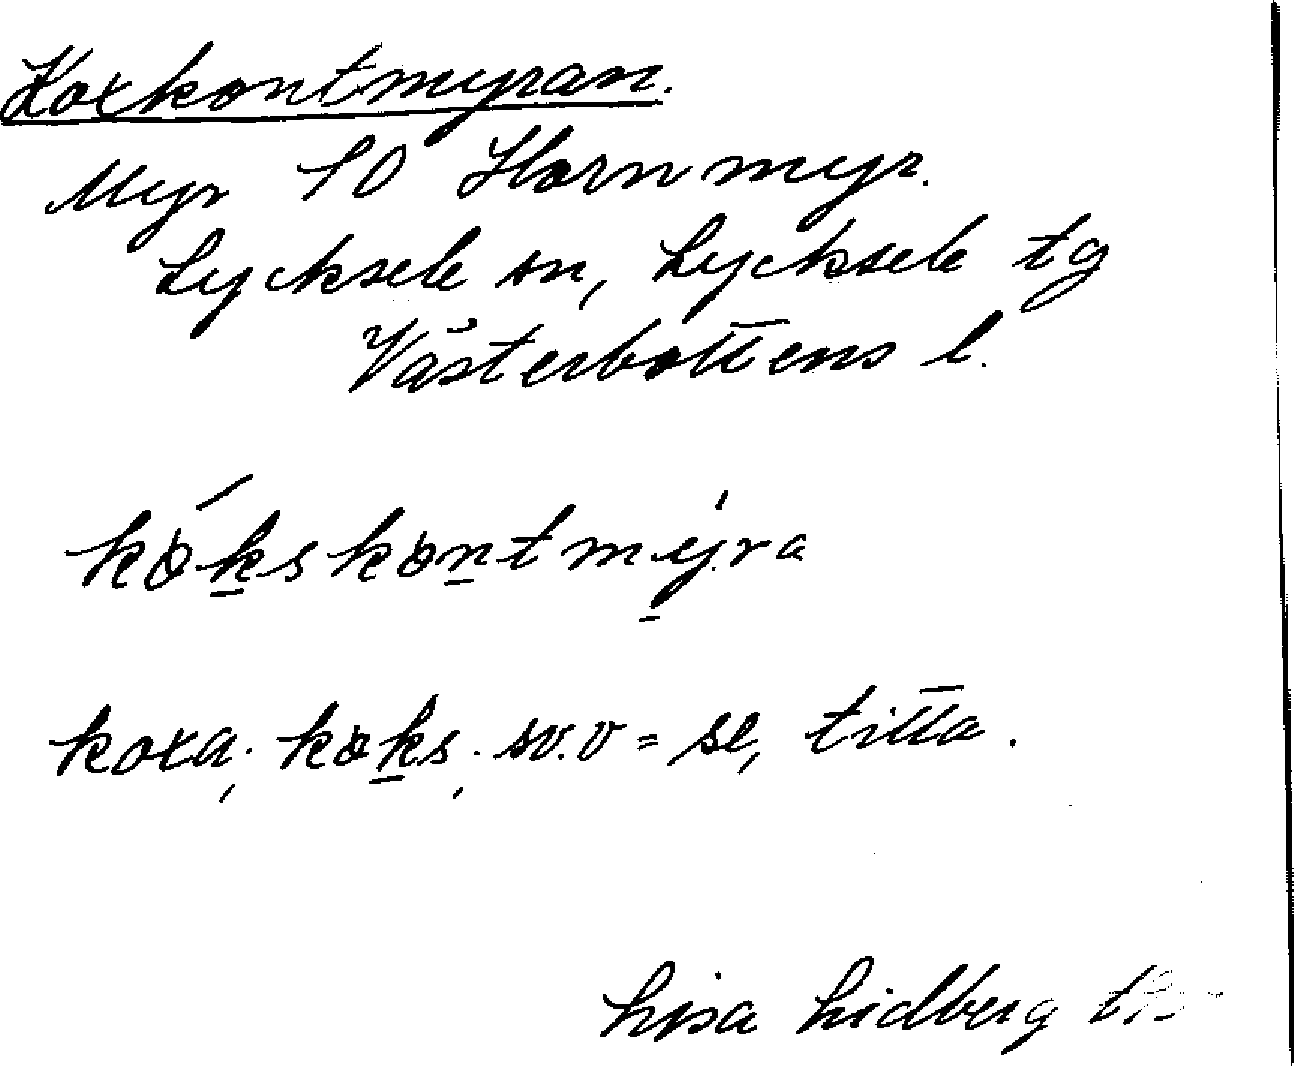 Koxkontmyran.
Myr SO Hornmyr.
Lycksele sn, Lycksele tg
Västerbottens l.
kókskontmýra
koxa, koks, sv.v = se, titta.
Lisa Lidberg